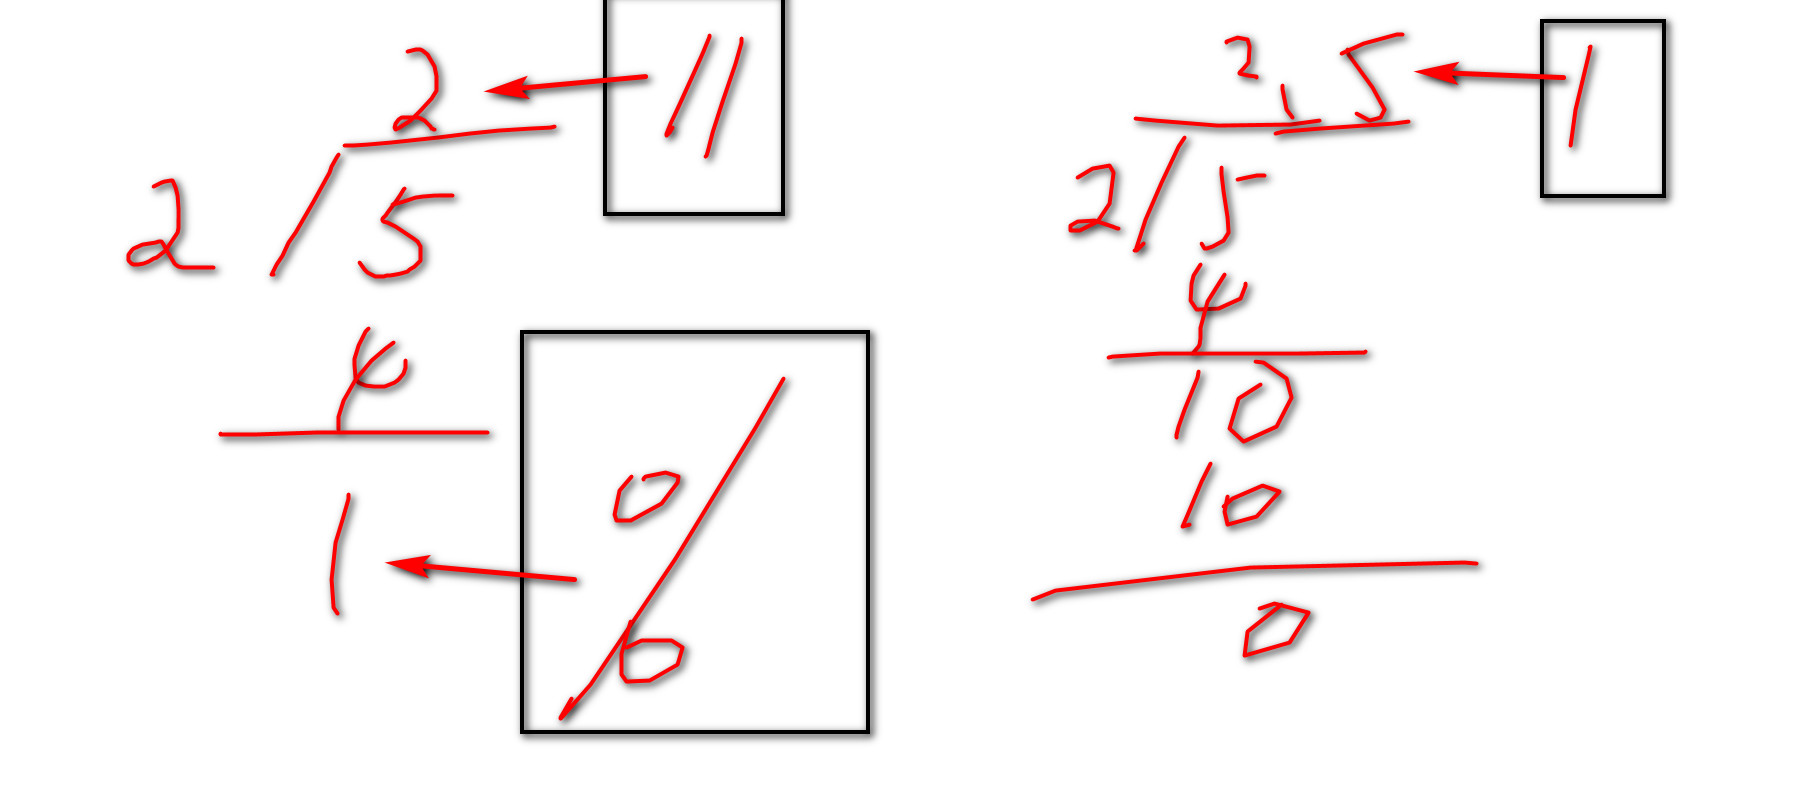 2 //
2 / 5
4
1
0 / 0
2,5 /
2 / 5
4
10
10
0